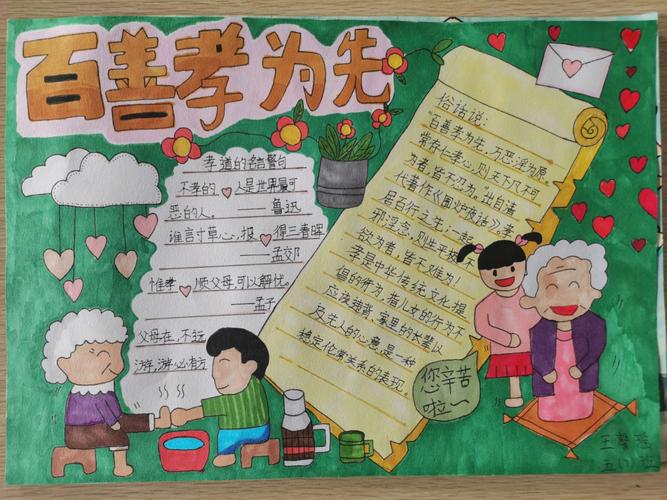 百善孝为先
孝道的名言警句
不孝的人是世界最可
恶的人。 鲁迅
谁言寸草心,报得三春晖
——孟郊
惟孝顺父母,可以解忧。
——孟子
父母在,不远
游,游必有方
俗话说:
“百善孝为先,万恶淫为原
常存仁孝心,则天下凡不可
为者,皆不忍为。”出自清
代著作《围炉夜话》。孝
居百行之先;一起
邪淫念,则生平极不
欲为者,皆不难为!
孝是中华传统文化提
倡的行为,指儿女的行为不
应该违背家里的长辈以
及先人的心意,是一种
稳定伦常关系的表现。
您辛苦
啦~
五(1)班